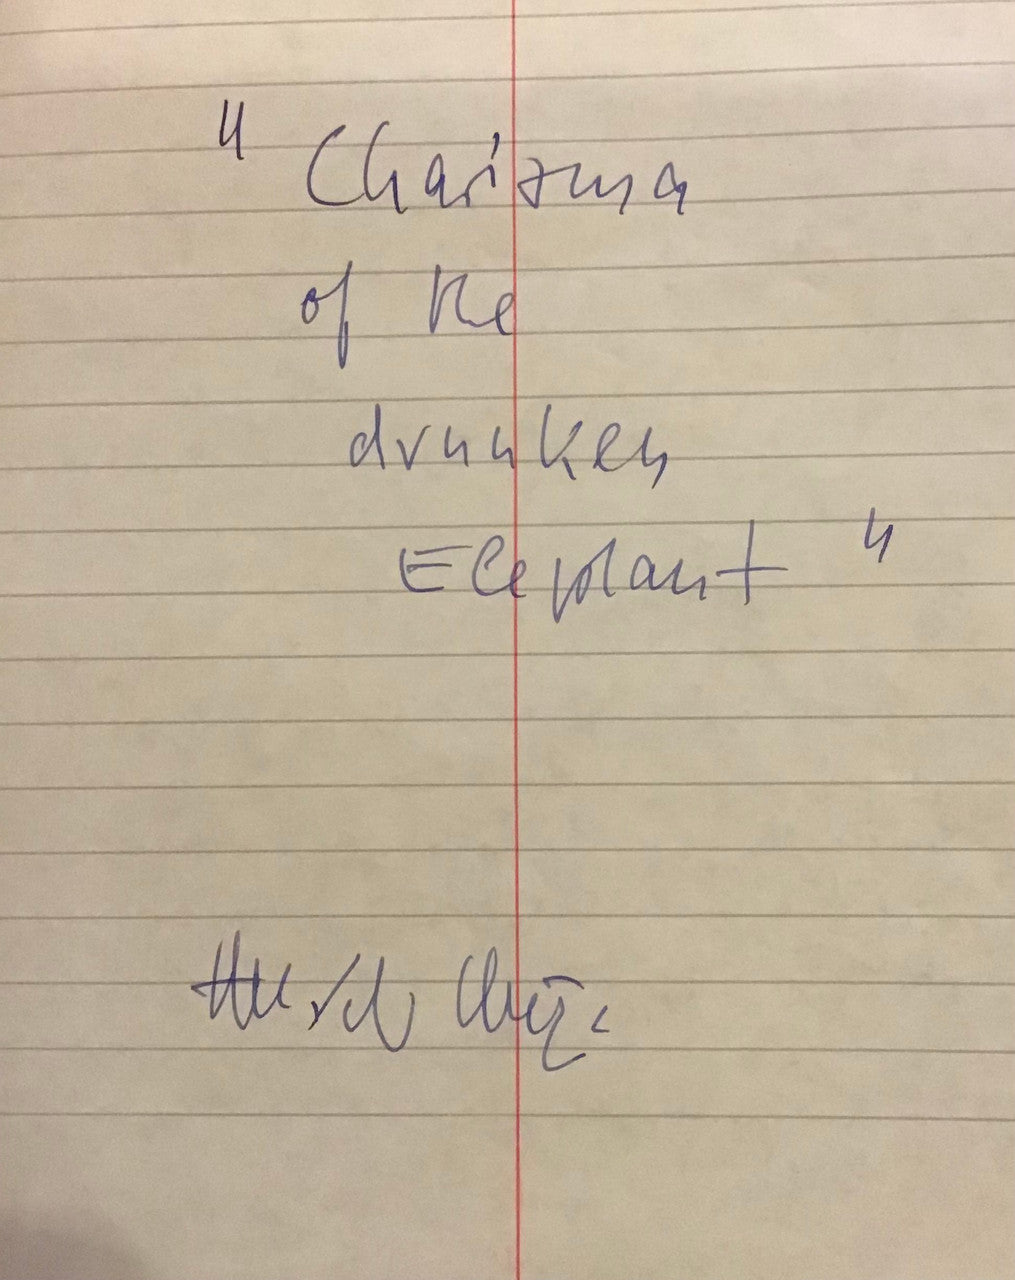 "Charisma
of the
drunken
Elephant"